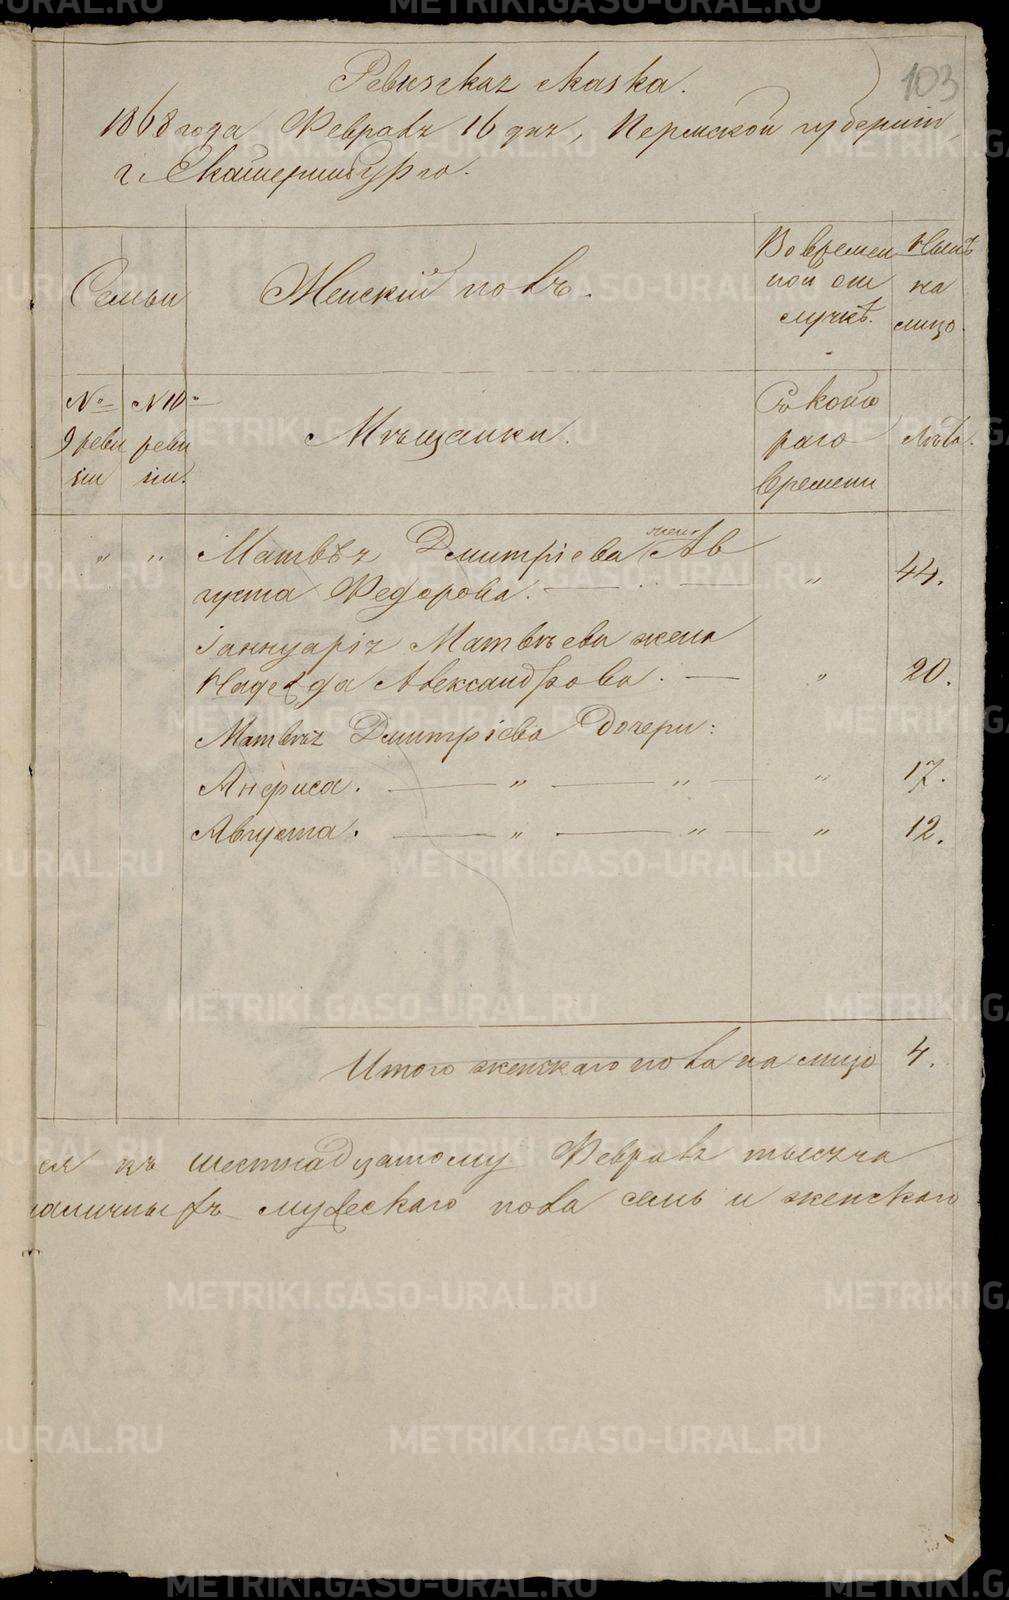 103
Ревизская сказка.
1868 года Февраля 16 дня, Пермской губернии,
г. Екатеринбурга.
Семьи
Женский полъ.
Во времен
ной от
лучкѣ.
Нынѣ
на
лицо.
№
9 реви
зии
№ 10
реви
зии.
Мѣщанки.
Съ кото
раго
времени
Лѣта.
" " Матвѣя Дмитріева жена Ав
густа Федорова. " 44.
Іаннуарія Матвѣева жена
Надежда Александрова. " 20.
Матвѣя Дмитріева дочери:
Анфиса. " " " 17.
Августа. " " " 12.
Итого женскаго пола на лицо 4.
ся къ шестнадцатому Февраля тысяча
наличныхъ мужескаго пола семь и женскаго
METRIKI.GASO-URAL.RU